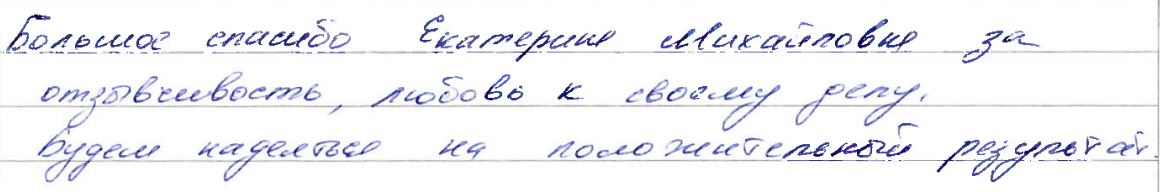 Большое спасибо Екатерине Михайловне за
отзывчивость, любовь к своему делу.
Будем надеяться на положительный результат.